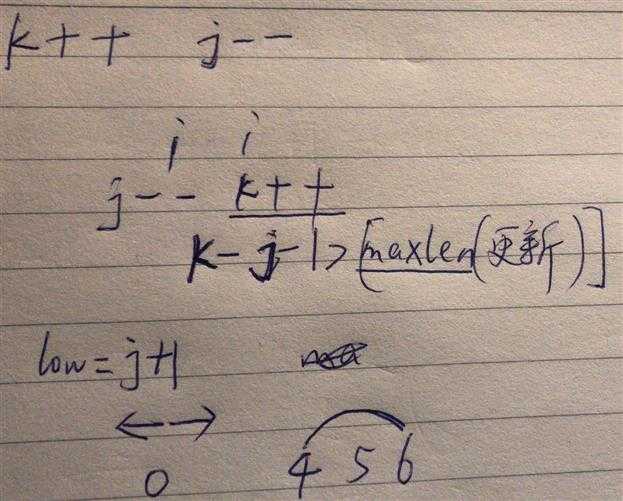 k++ j--
i i
j-- k++
k-j-1>[maxlen(更新)]
low=j+1
0 4 5 6